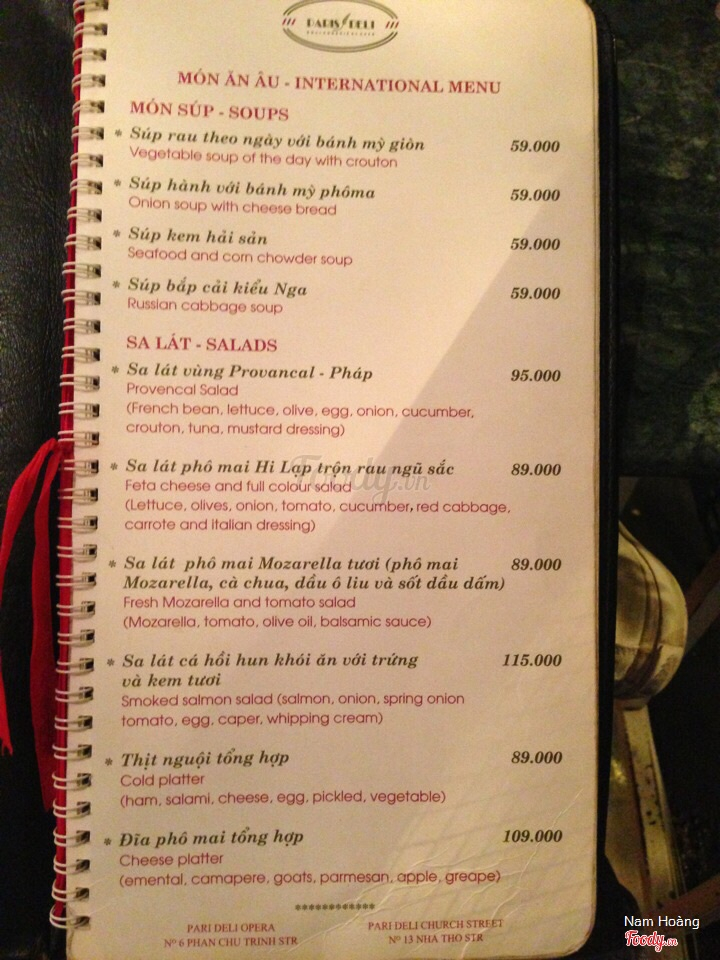 PARIS DELI
MÓN ĂN ÂU - INTERNATIONAL MENU
MÓN SÚP - SOUPS
* Súp rau theo ngày với bánh mỳ giòn 59.000
Vegetable soup of the day with crouton
* Súp hành với bánh mỳ phôma 59.000
Onion soup with cheese bread
* Súp kem hải sản 59.000
Seafood and corn chowder soup
* Súp bắp cải kiểu Nga 59.000
Russian cabbage soup
SA LÁT - SALADS
* Sa lát vùng Provancal - Pháp 95.000
Provencal Salad
(French bean, lettuce, olive, egg, onion, cucumber,
crouton, tuna, mustard dressing)
* Sa lát phô mai Hi Lạp trộn rau ngũ sắc 89.000
Feta cheese and full colour salad
(Lettuce, olives, onion, tomato, cucumber, red cabbage,
carrote and italian dressing)
* Sa lát phô mai Mozarella tươi (phô mai 89.000
Mozarella, cà chua, dầu ô liu và sốt dầu dấm)
Fresh Mozarella and tomato salad
(Mozarella, tomato, olive oil, balsamic sauce)
* Sa lát cá hồi hun khói ăn với trứng 115.000
và kem tươi
Smoked salmon salad (salmon, onion, spring onion
tomato, egg, caper, whipping cream)
* Thịt nguội tổng hợp 89.000
Cold platter
(ham, salami, cheese, egg, pickled, vegetable)
* Đĩa phô mai tổng hợp 109.000
Cheese platter
(emental, camapere, goats, parmesan, apple, greape)
************
PARI DELI OPERA PARI DELI CHURCH STREET
Nº 6 PHAN CHU TRINH STR Nº 13 NHA THO STR
Foody.vn
Nam Hoàng
Foody.vn